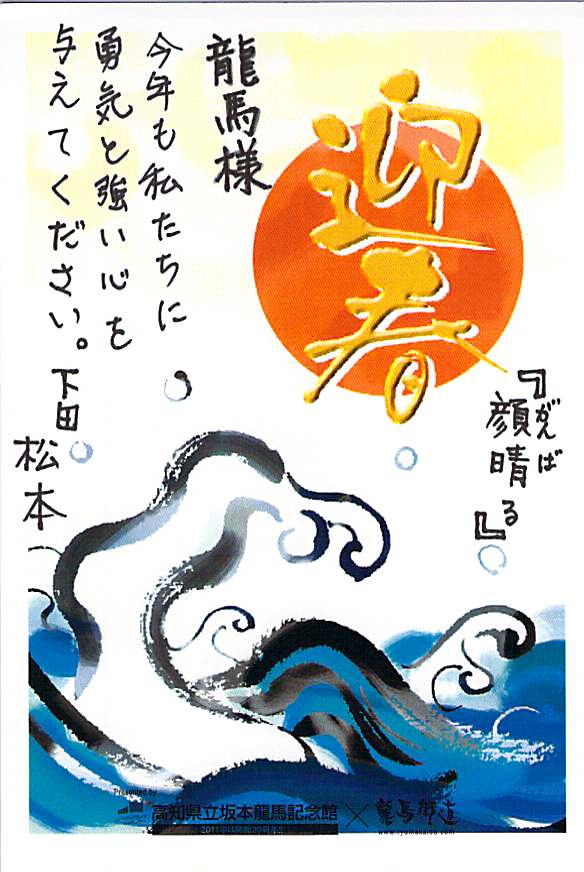 迎春
龍馬様
今年も私たちに
勇気と強い心を
与えてください。
下田
松本
『顔晴る』
がんば
Presented by
高知県立坂本龍馬記念館 × 龍馬街道
www.ryomakaido.com